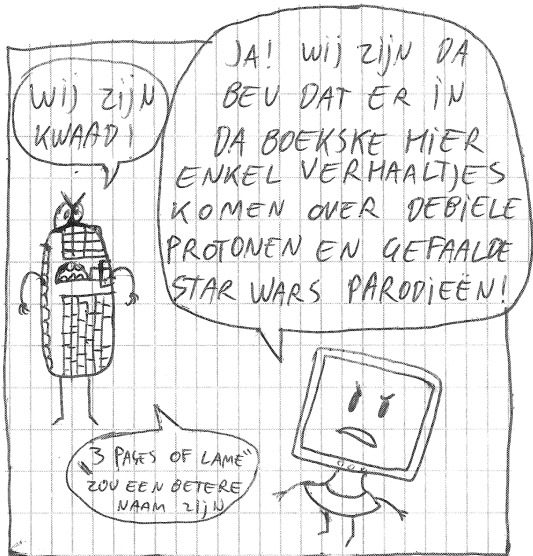 WIJ ZIJN
KWAAD!
JA! WIJ ZIJN DA
BEU DAT ER IN
DA BOEKSKE HIER
ENKEL VERHAALTJES
KOMEN OVER DEBIELE
PROTONEN EN GEFAALDE
STAR WARS PARODIEËN!
"3 PAGES OF LAME"
ZOU EEN BETERE
NAAM ZIJN